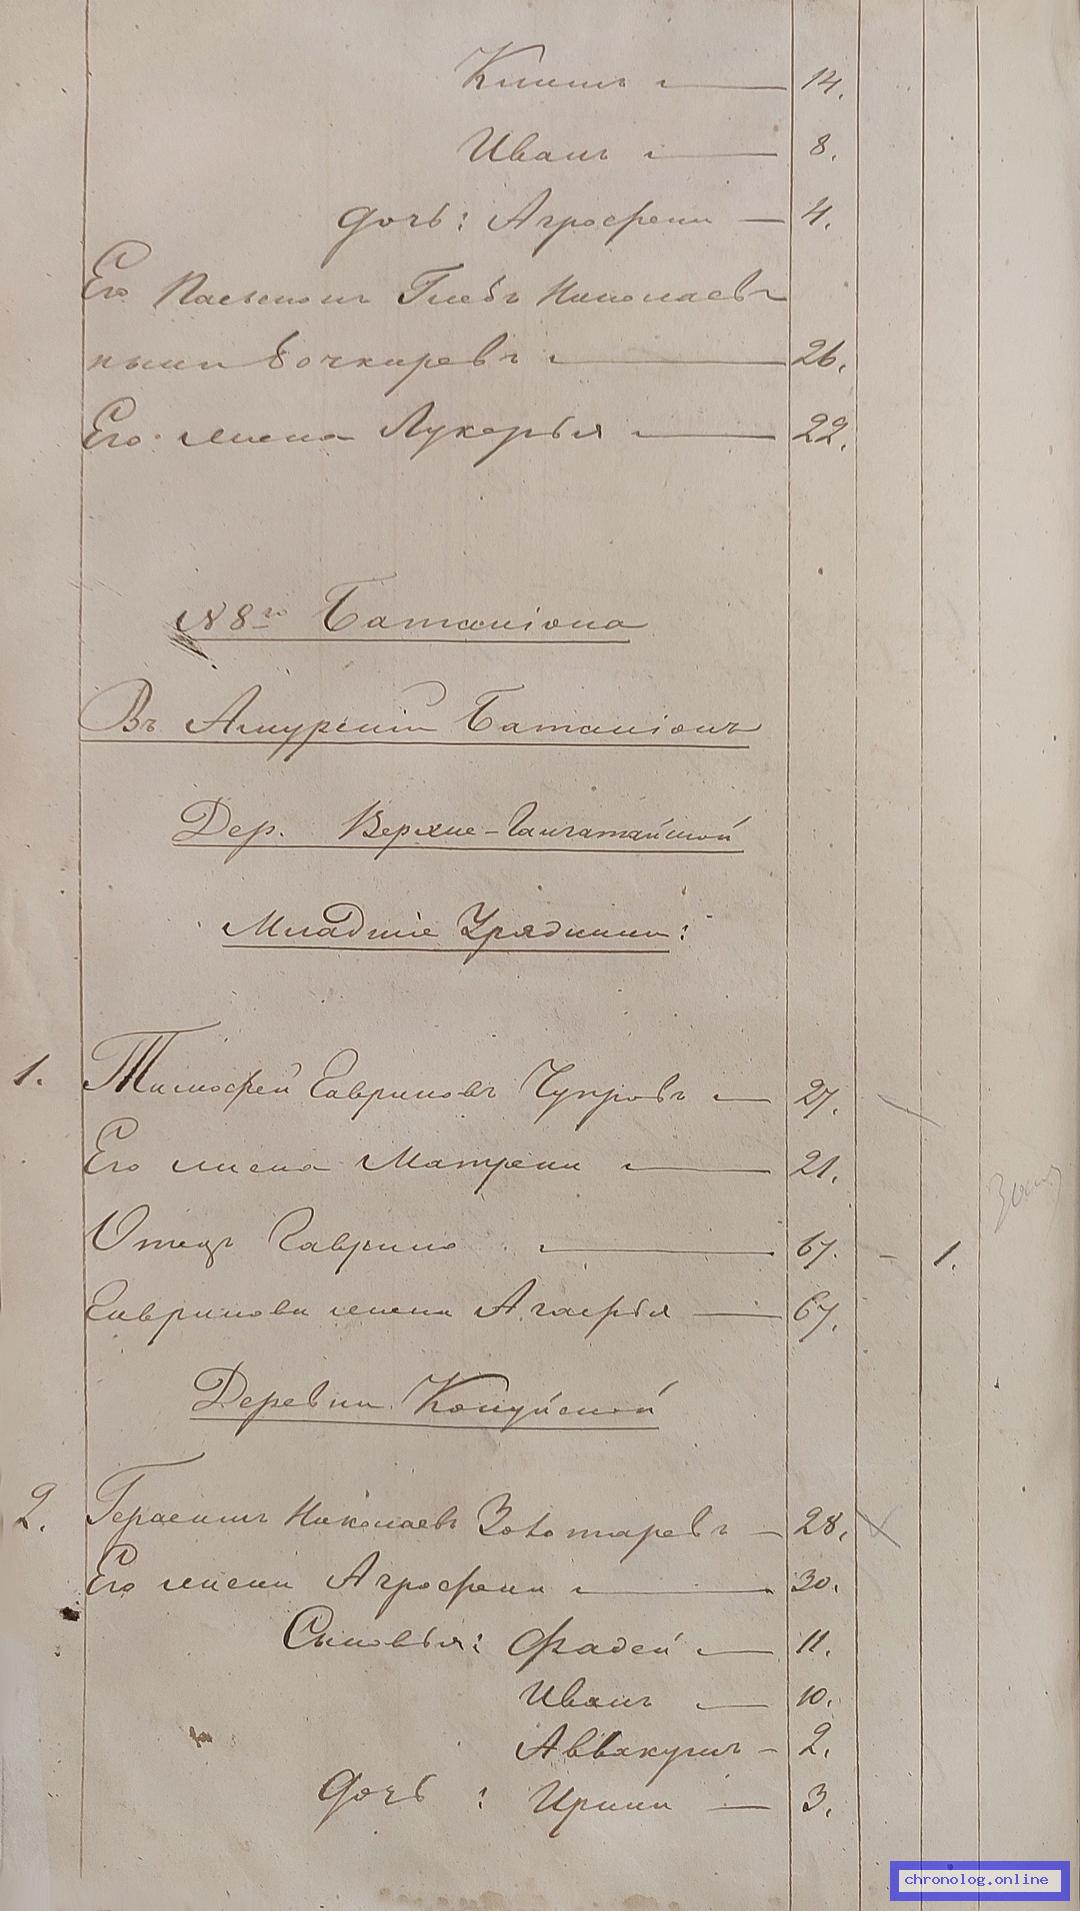 Климъ — 14.
Иванъ — 8.
дочь: Агрофена — 4.
Его Пасынокъ Глебъ Николаевъ
нынѣ Бочкаревъ — 26.
Его жена Лукерья — 22.
№ 8го Баталіона
Въ Амурскій Баталіонъ
Дер. Верхне-Ганчатайской
Младшіе Урядники:
1. Тимофей Гавриловъ Чупровъ — 27.
Его жена Матрена — 21.
Отецъ Гаврило — 67. — 1.
Гаврилова жена Агафья — 67.
Деревни Кокуйской
2. Герасимъ Николаевъ Золотаревъ — 28.
Его жена Агрофена — 30.
Сыновья: Фадей — 11.
Иванъ — 10.
Аввакумъ — 2.
Дочь : Ирина — 3.
chronolog.online